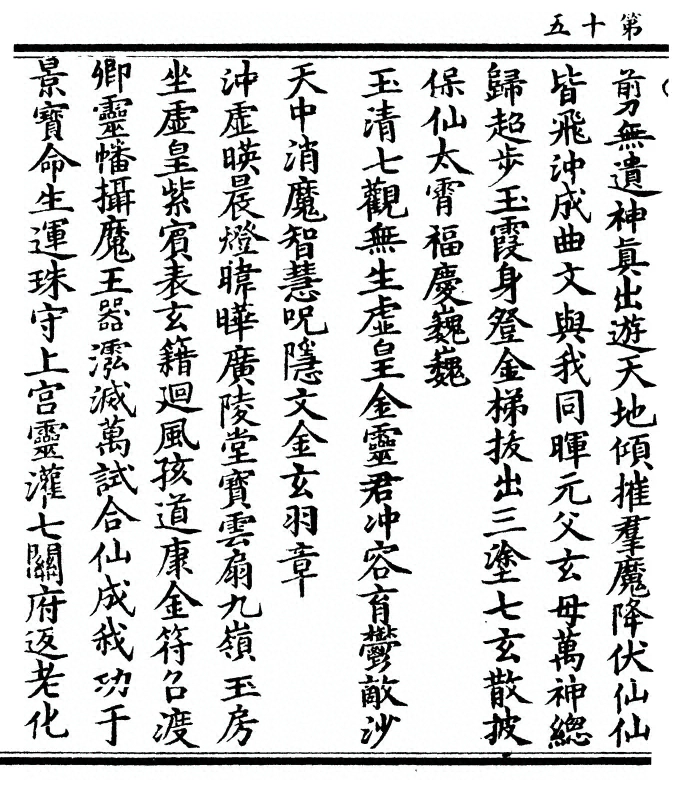 第十五
剪無遺神眞出遊天地傾摧羣魔降伏仙仙
皆飛沖成曲文與我同暉元父玄母萬神總
歸超步玉霞身登金梯拔出三塗七玄散披
保仙太霄福慶巍巍
玉清七觀無生虛皇金靈君冲容育鬱敵沙
天中消魔智慧呪隱文金玄羽章
沖虛暎晨燈暐曄廣陵堂寶雲扇九嶺玉房
坐虛皇紫賓表玄籍廻風孩道康金符召渡
卿靈幡攝魔王器澪滅萬試合仙成我功于
景寶命生運珠守上宫靈灌七關府返老化